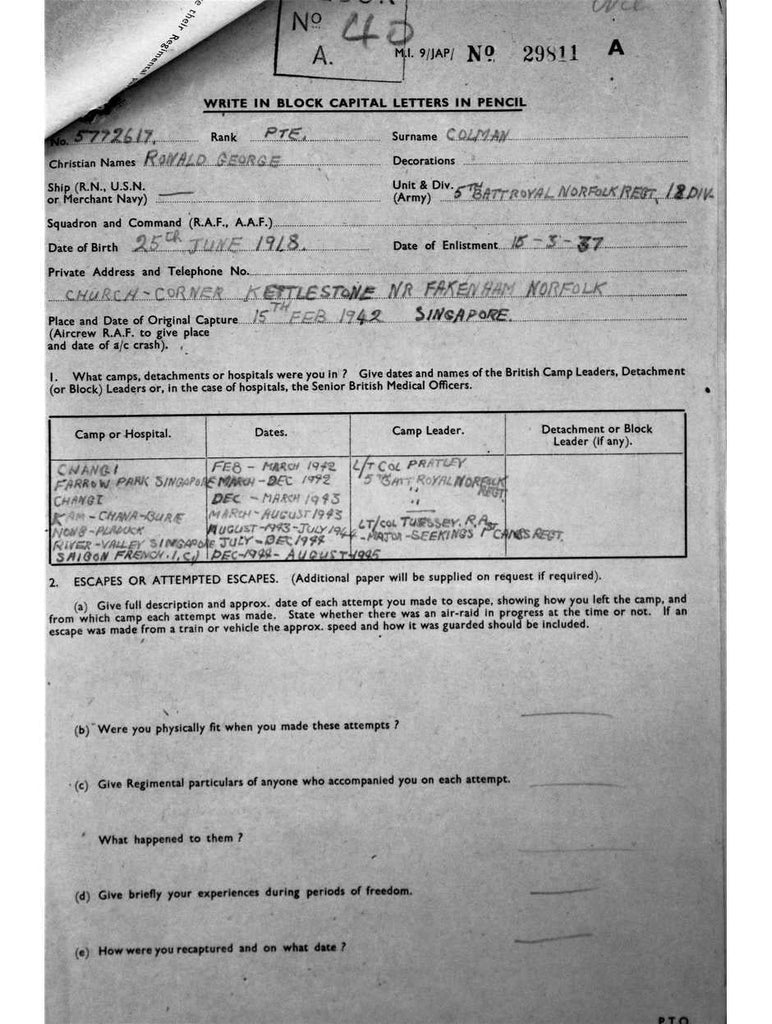 e their Regimental
No 40
A.
M.I. 9/JAP/ No 29811 A
WRITE IN BLOCK CAPITAL LETTERS IN PENCIL
No. 5772617. Rank PTE. Surname COLMAN
Christian Names RONALD GEORGE Decorations
Ship (R.N., U.S.N. or Merchant Navy) —
Unit & Div. (Army) 5TH BATT ROYAL NORFOLK REGT, 18 DIV.
Squadron and Command (R.A.F., A.A.F.)
Date of Birth 25th JUNE 1918. Date of Enlistment 15-3-37
Private Address and Telephone No.
CHURCH-CORNER KETTLESTONE NR FAKENHAM NORFOLK
Place and Date of Original Capture 15TH FEB 1942 SINGAPORE.
(Aircrew R.A.F. to give place
and date of a/c crash).
1. What camps, detachments or hospitals were you in ? Give dates and names of the British Camp Leaders, Detachment
(or Block) Leaders or, in the case of hospitals, the Senior British Medical Officers.
Camp or Hospital. Dates. Camp Leader. Detachment or Block Leader (if any).
CHANGI FEB - MARCH 1942 L/T COL PRATLEY
FARROW PARK SINGAPORE MARCH - DEC 1942 5TH BATT ROYAL NORFOLK REGT
CHANGI DEC - MARCH 1943 "
KAM-CHANA-BURE MARCH - AUGUST 1943 "
NONG-PLADUCK AUGUST-1943-JULY 1944 LT/COL R.A.
RIVER-VALLEY SINGAPORE JULY-DEC 1944 -MAJOR-SEEKINGS 1st CAMBS REGT.
SAIGON FRENCH.I.C) DEC-1944-AUGUST 1945
2. ESCAPES OR ATTEMPTED ESCAPES. (Additional paper will be supplied on request if required).
(a) Give full description and approx. date of each attempt you made to escape, showing how you left the camp, and
from which camp each attempt was made. State whether there was an air-raid in progress at the time or not. If an
escape was made from a train or vehicle the approx. speed and how it was guarded should be included.
(b) Were you physically fit when you made these attempts ?
(c) Give Regimental particulars of anyone who accompanied you on each attempt.
What happened to them ?
(d) Give briefly your experiences during periods of freedom.
(e) How were you recaptured and on what date ?
P.T.O.